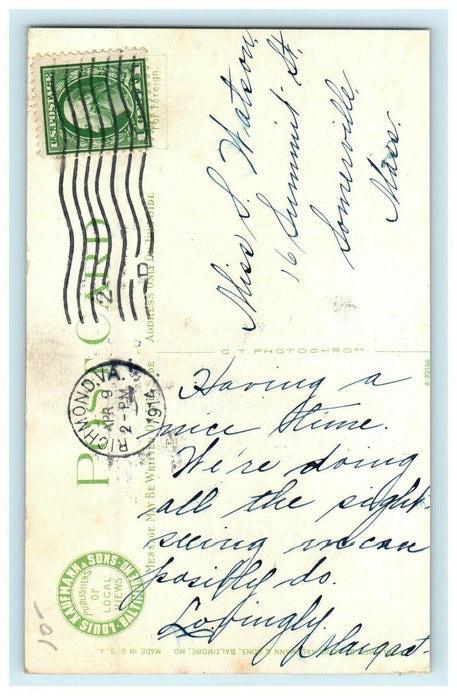 U.S. POSTAGE
RICHMOND, VA.
APR 9
2-PM
1914
2
D
POST CARD
MESSAGE MAY BE WRITTEN
SIDE
ADDRESS
SIDE
For Foreign
Miss S. Watson,
16 Summit St.
Somerville,
Mass.
C T PHOTOCHROM
A-39146
Having a
nice time.
We're doing
all the sight
seeing we can
posibly do.
Lovingly
Margaret
LOUIS KAUFMANN & SONS
BALTIMORE, MD.
PUBLISHERS
OF
LOCAL
VIEWS
& SONS, BALTIMORE, MD
MADE IN U. S. A.
10-